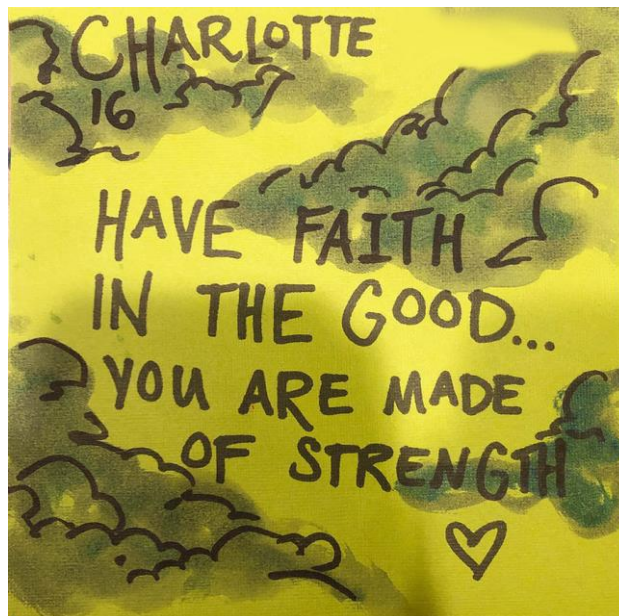 CHARLOTTE
16
HAVE FAITH
IN THE GOOD...
YOU ARE MADE
OF STRENGTH